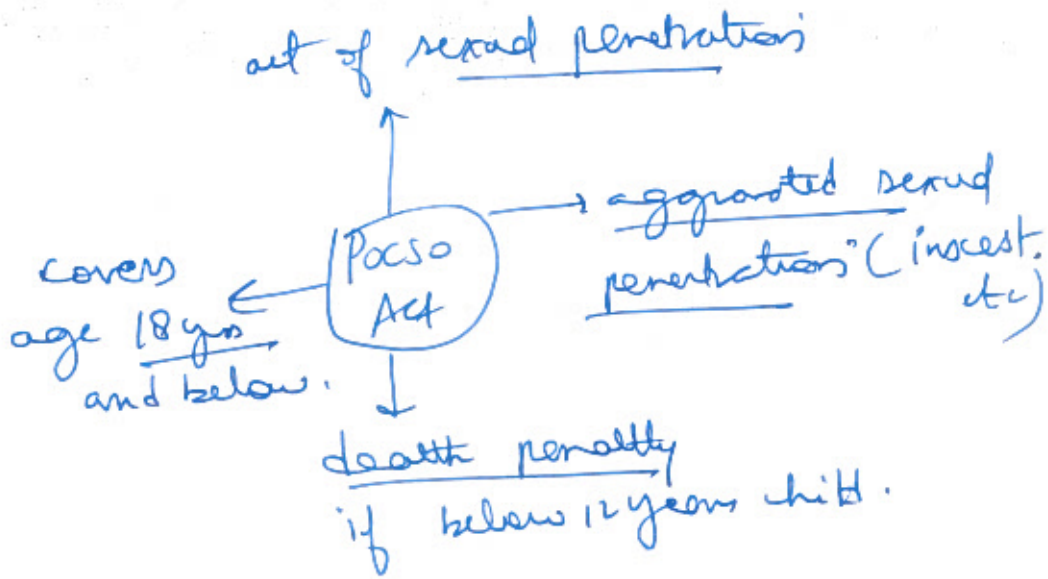 act of sexual penetration
POCSO
Act
aggravated sexual
penetration (inscest.
etc)
covers
age 18 yrs
and below.
death penaltty
if below 12 years child.